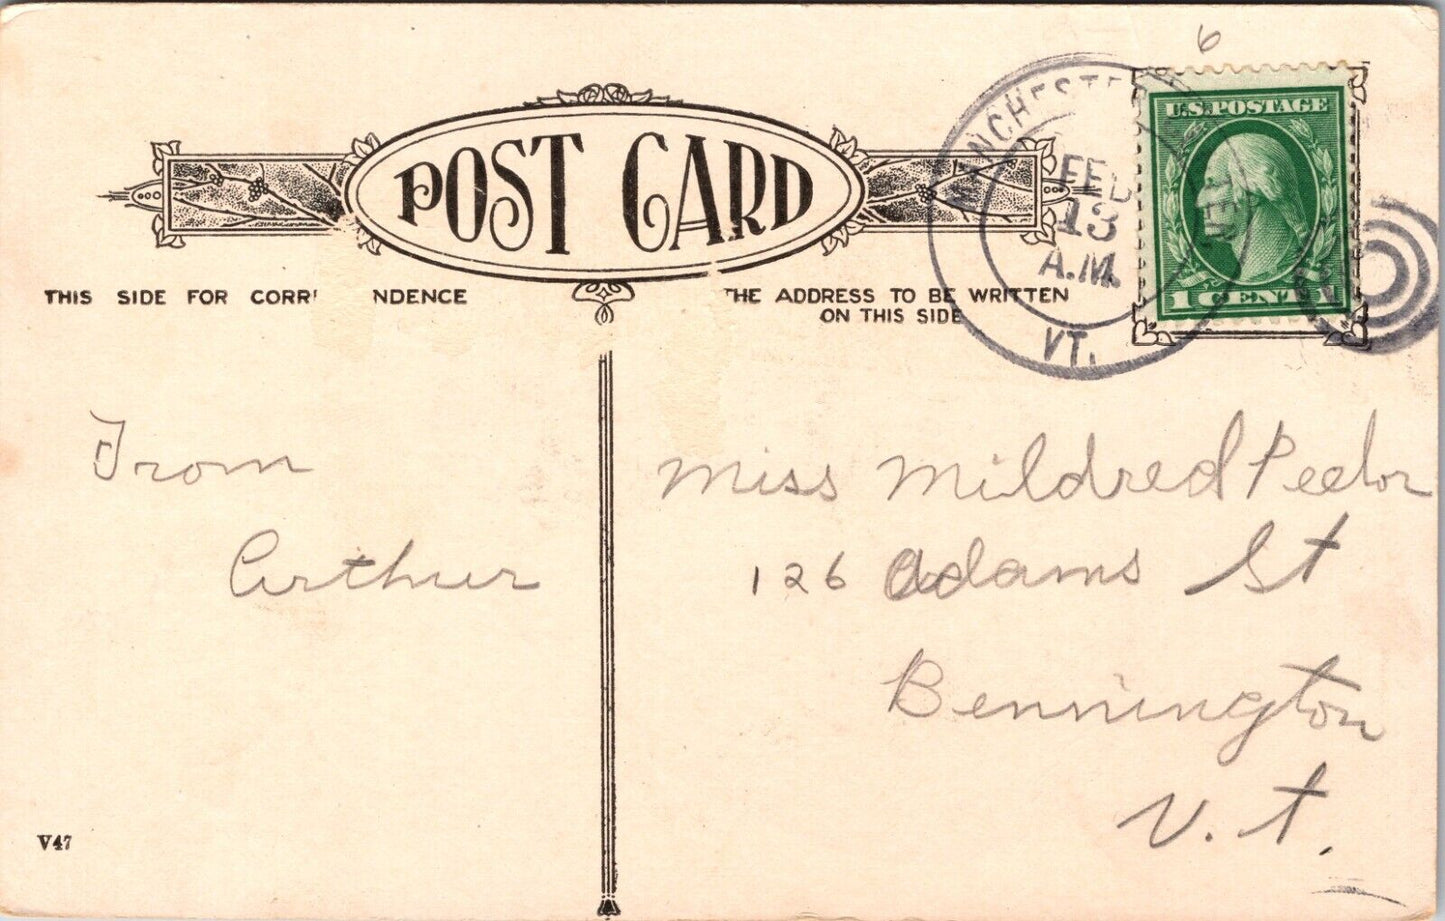 6
U.S. POSTAGE
1 CENT 1
MANCHESTER
FEB
13
A.M.
VT.
POST CARD
THIS SIDE FOR CORR NDENCE
THE ADDRESS TO BE WRITTEN
ON THIS SIDE
From
Arthur
Miss Mildred
126 Adams St
Bennington
V. t.
V47